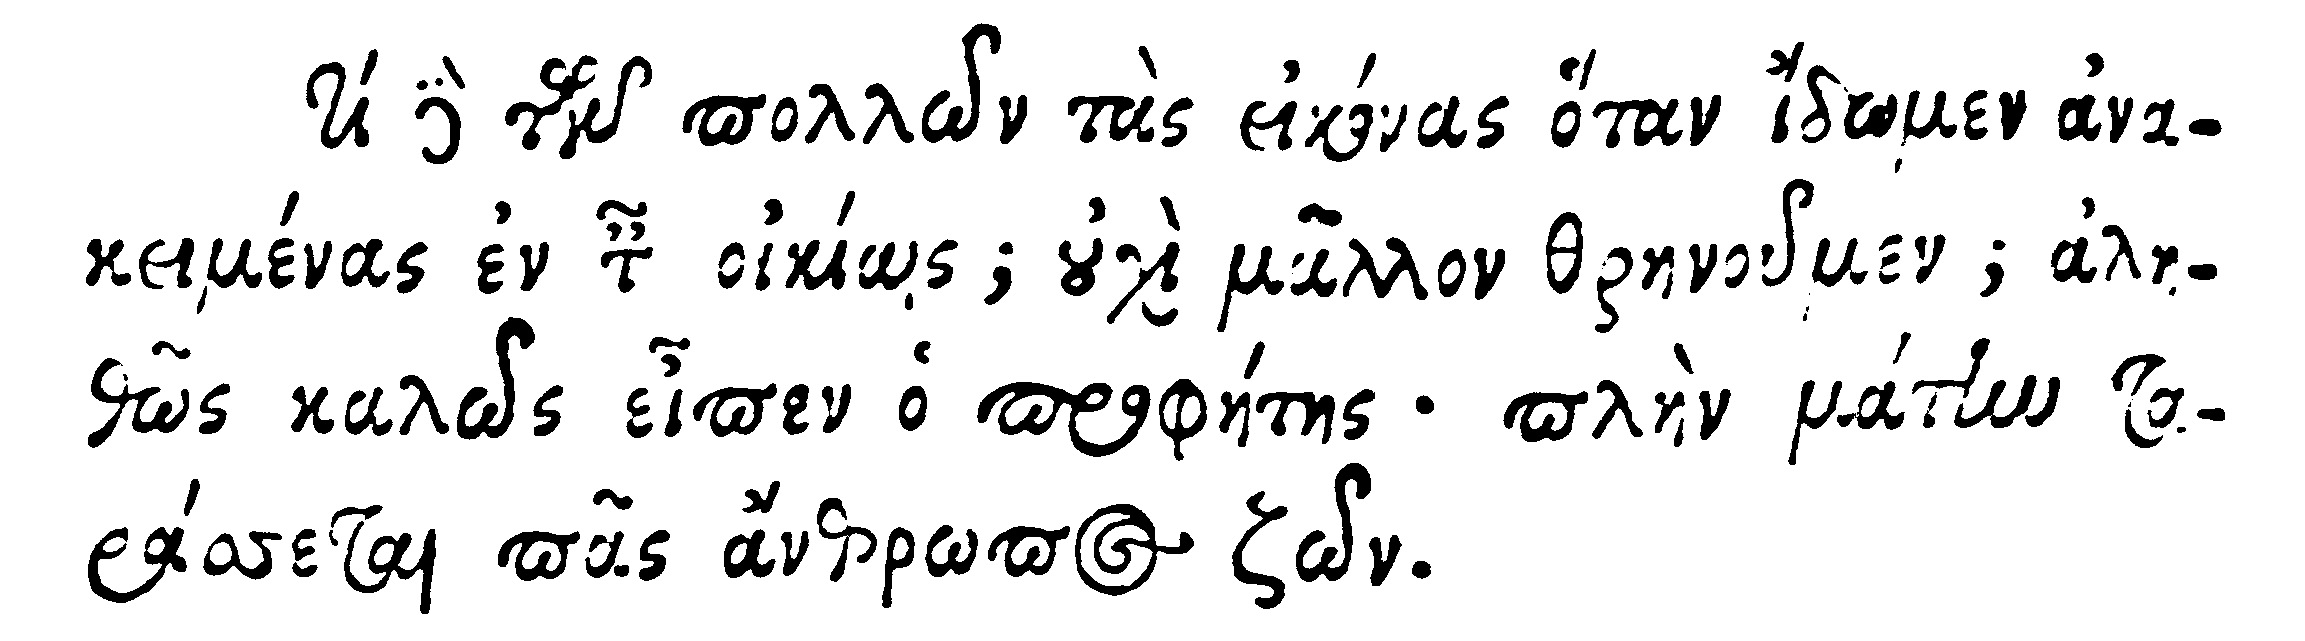 καὶ γὰρ πολλῶν τὰς εἰκόνας ὅταν ἴδωμεν ἀνα-
κειμένας ἐν ταῖς οἰκίαις; οὐχὶ μᾶλλον θρηνοῦμεν; ἀλη-
θῶς καλῶς εἶπεν ὁ προφήτης · πλὴν μάτην τα-
ράσσεται πᾶς ἄνθρωπος ζῶν.